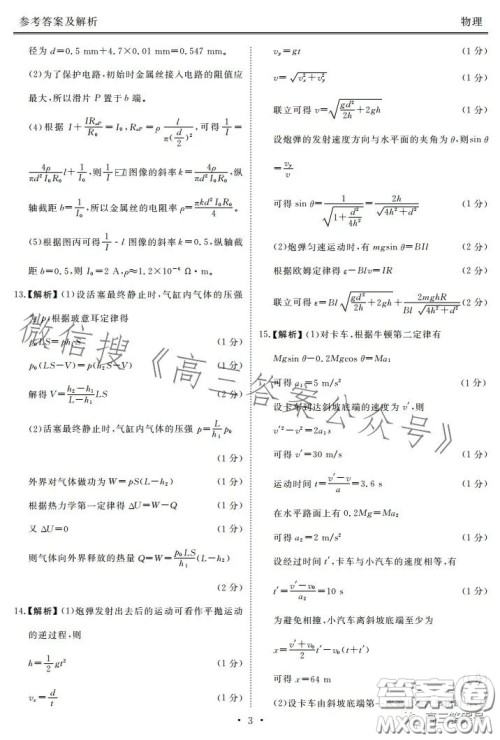 参考答案及解析 物理
径为 d=0.5 mm+4.7×0.01 mm=0.547 mm。
(2)为了保护电路,初始时金属丝接入电路的阻值应
最大,所以滑片 P 置于 b 端。
(4)根据 I+IR_{aP}/R_0=I_0,R_{aP}=ρ l/(π(d/2)²),可得 1/I=
4ρ/(πd²I_0R_0) l+1/I_0,则 1/I-l 图像的斜率 k=4ρ/(πd²I_0R_0),纵
轴截距 b=1/I_0,所以金属丝的电阻率 ρ=πkd²I_0R_0/4。
(5)根据图丙可得 1/I-l 图像的斜率 k=0.5,纵轴截
距 b=0.5,则 I_0=2 A,ρ≈1.2×10⁻⁶ Ω·m。
13.【解析】(1)设活塞最终静止时,气缸内气体的压强
p,根据玻意耳定律得
p_0LS=ph_1S (1分)
p_0(LS-V)=ph_2S (1分)
解得 V=(h_1-h_2)/h_1 LS (2分)
(2)活塞最终静止时,气缸内气体的压强 p=L/h_1 p_0
(1分)
外界对气体做功为 W=pS(L-h_2) (1分)
根据热力学第一定律得 ΔU=W-Q (1分)
又 ΔU=0 (1分)
则气体向外界释放的热量 Q=W=p_0LS/h_1 (L-h_2)
(2分)
14.【解析】(1)炮弹发射出去后的运动可看作平抛运动
的逆过程,则
h=1/2 gt² (1分)
v_x=d/t (1分)
v_y=gt (1分)
v=√(v_x²+v_y²) (1分)
联立可得 v=√(gd²/2h+2gh) (1分)
设炮弹的发射速度方向与水平面的夹角为 θ,则sin θ
=v_y/v (1分)
可得 sin θ=1/√(1+d²/4h²)=2h/√(4h²+d²) (1分)
(2)炮弹匀速运动时,有 mgsin θ=BIl (2分)
根据欧姆定律得 ε-Blv=IR (2分)
联立可得 ε=Bl√(gd²/2h+2gh)+2mghR/(Bl√(4h²+d²)) (2分)
15.【解析】(1)对卡车,根据牛顿第二定律有
Mgsin θ-0.2Mgcos θ=Ma_1 (1分)
可得 a_1=5 m/s² (1分)
设卡车到达斜坡底端的速度为 v′,则
v′²-v²=2a_1s (1分)
可得 v′=30 m/s (1分)
运动时间 t=(v′-v)/a=3.6 s (1分)
在水平路面上有 0.2Mg=Ma_2
可得 a_2=2 m/s² (1分)
设经过时间 t′,卡车与小汽车的速度相等,有
t′=(v′-v_0)/a_2=10 s (1分)
为避免相撞,小汽车离斜坡底端至少为
x=(v′+v_0)/2 t′-v_0(t+t′) (1分)
可得 x=64 m (1分)
(2)设卡车由斜坡底端
· 3 ·
微信搜《高三答案公众号》
答案圈
MXQE.COM